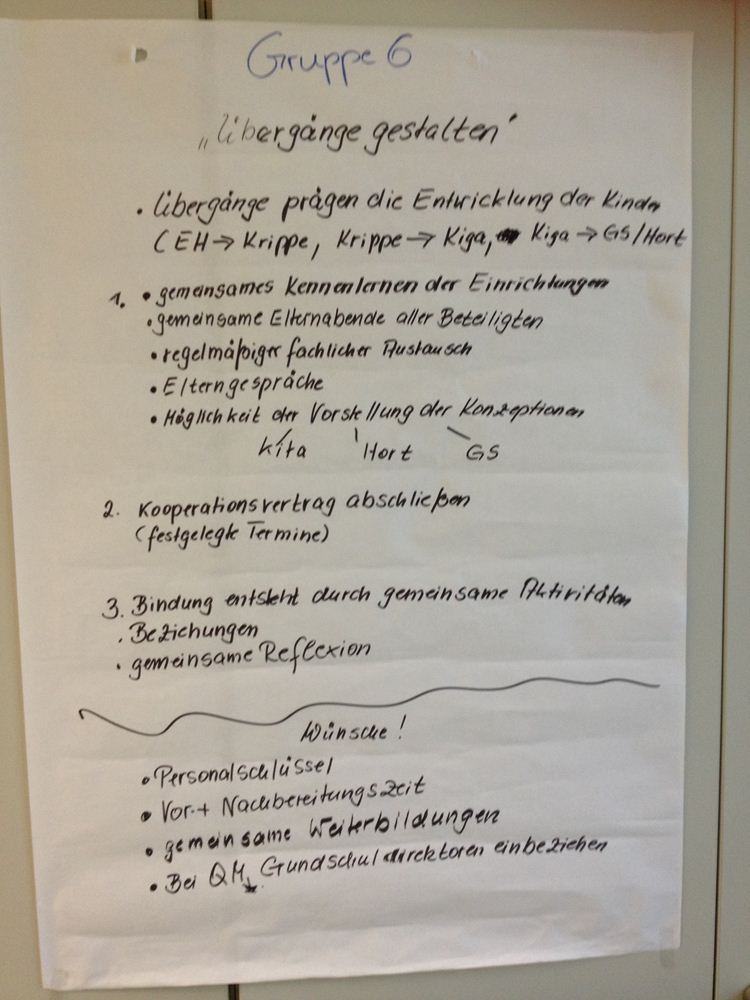 Gruppe 6
„Übergänge gestalten"
• Übergänge prägen die Entwicklung der Kinder
(EH → Krippe, Krippe → Kiga, Kiga → GS/Hort
1. • gemeinsames Kennenlernen der Einrichtungen
• gemeinsame Elternabende aller Beteiligten
• regelmäßiger fachlicher Austausch
• Elterngespräche
• Möglichkeit der Vorstellung der Konzeptionen
Kita Hort GS
2. Kooperationsvertrag abschließen
(festgelegte Termine)
3. Bindung entsteht durch gemeinsame Aktivitäten
• Beziehungen
• gemeinsame Reflexion
Wünsche!
• Personalschlüssel
• Vor- + Nachbereitungszeit
• gemeinsame Weiterbildungen
• Bei QM, Grundschuldirektoren einbeziehen